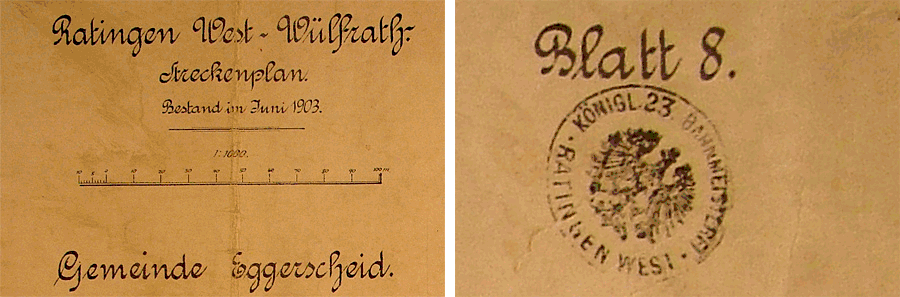 Ratingen West - Wülfrath.
Streckenplan.
Bestand im Juni 1903.
1:1000.
10 5 0 10 20 30 40 50 60 70 80 90 100 m
Gemeinde Eggerscheid.
Blatt 8.
KÖNIGL. 23. BAHNMEISTEREI
· RATINGEN WEST ·